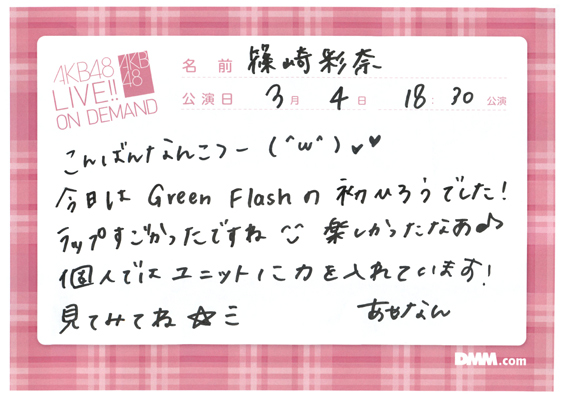 AKB48
LIVE!!
ON DEMAND
AKB
48
名前 篠崎彩奈
公演日 3月 4日 18:30 公演
こんばんなんこつー (^w^)♥♥
今日は Green Flashの 初ひろうでした!
ラップすごかったですね 楽しかったなあ♪
個人ではユニットに力を入れています!
見てみてね☆ミ あやなん
DMM.com